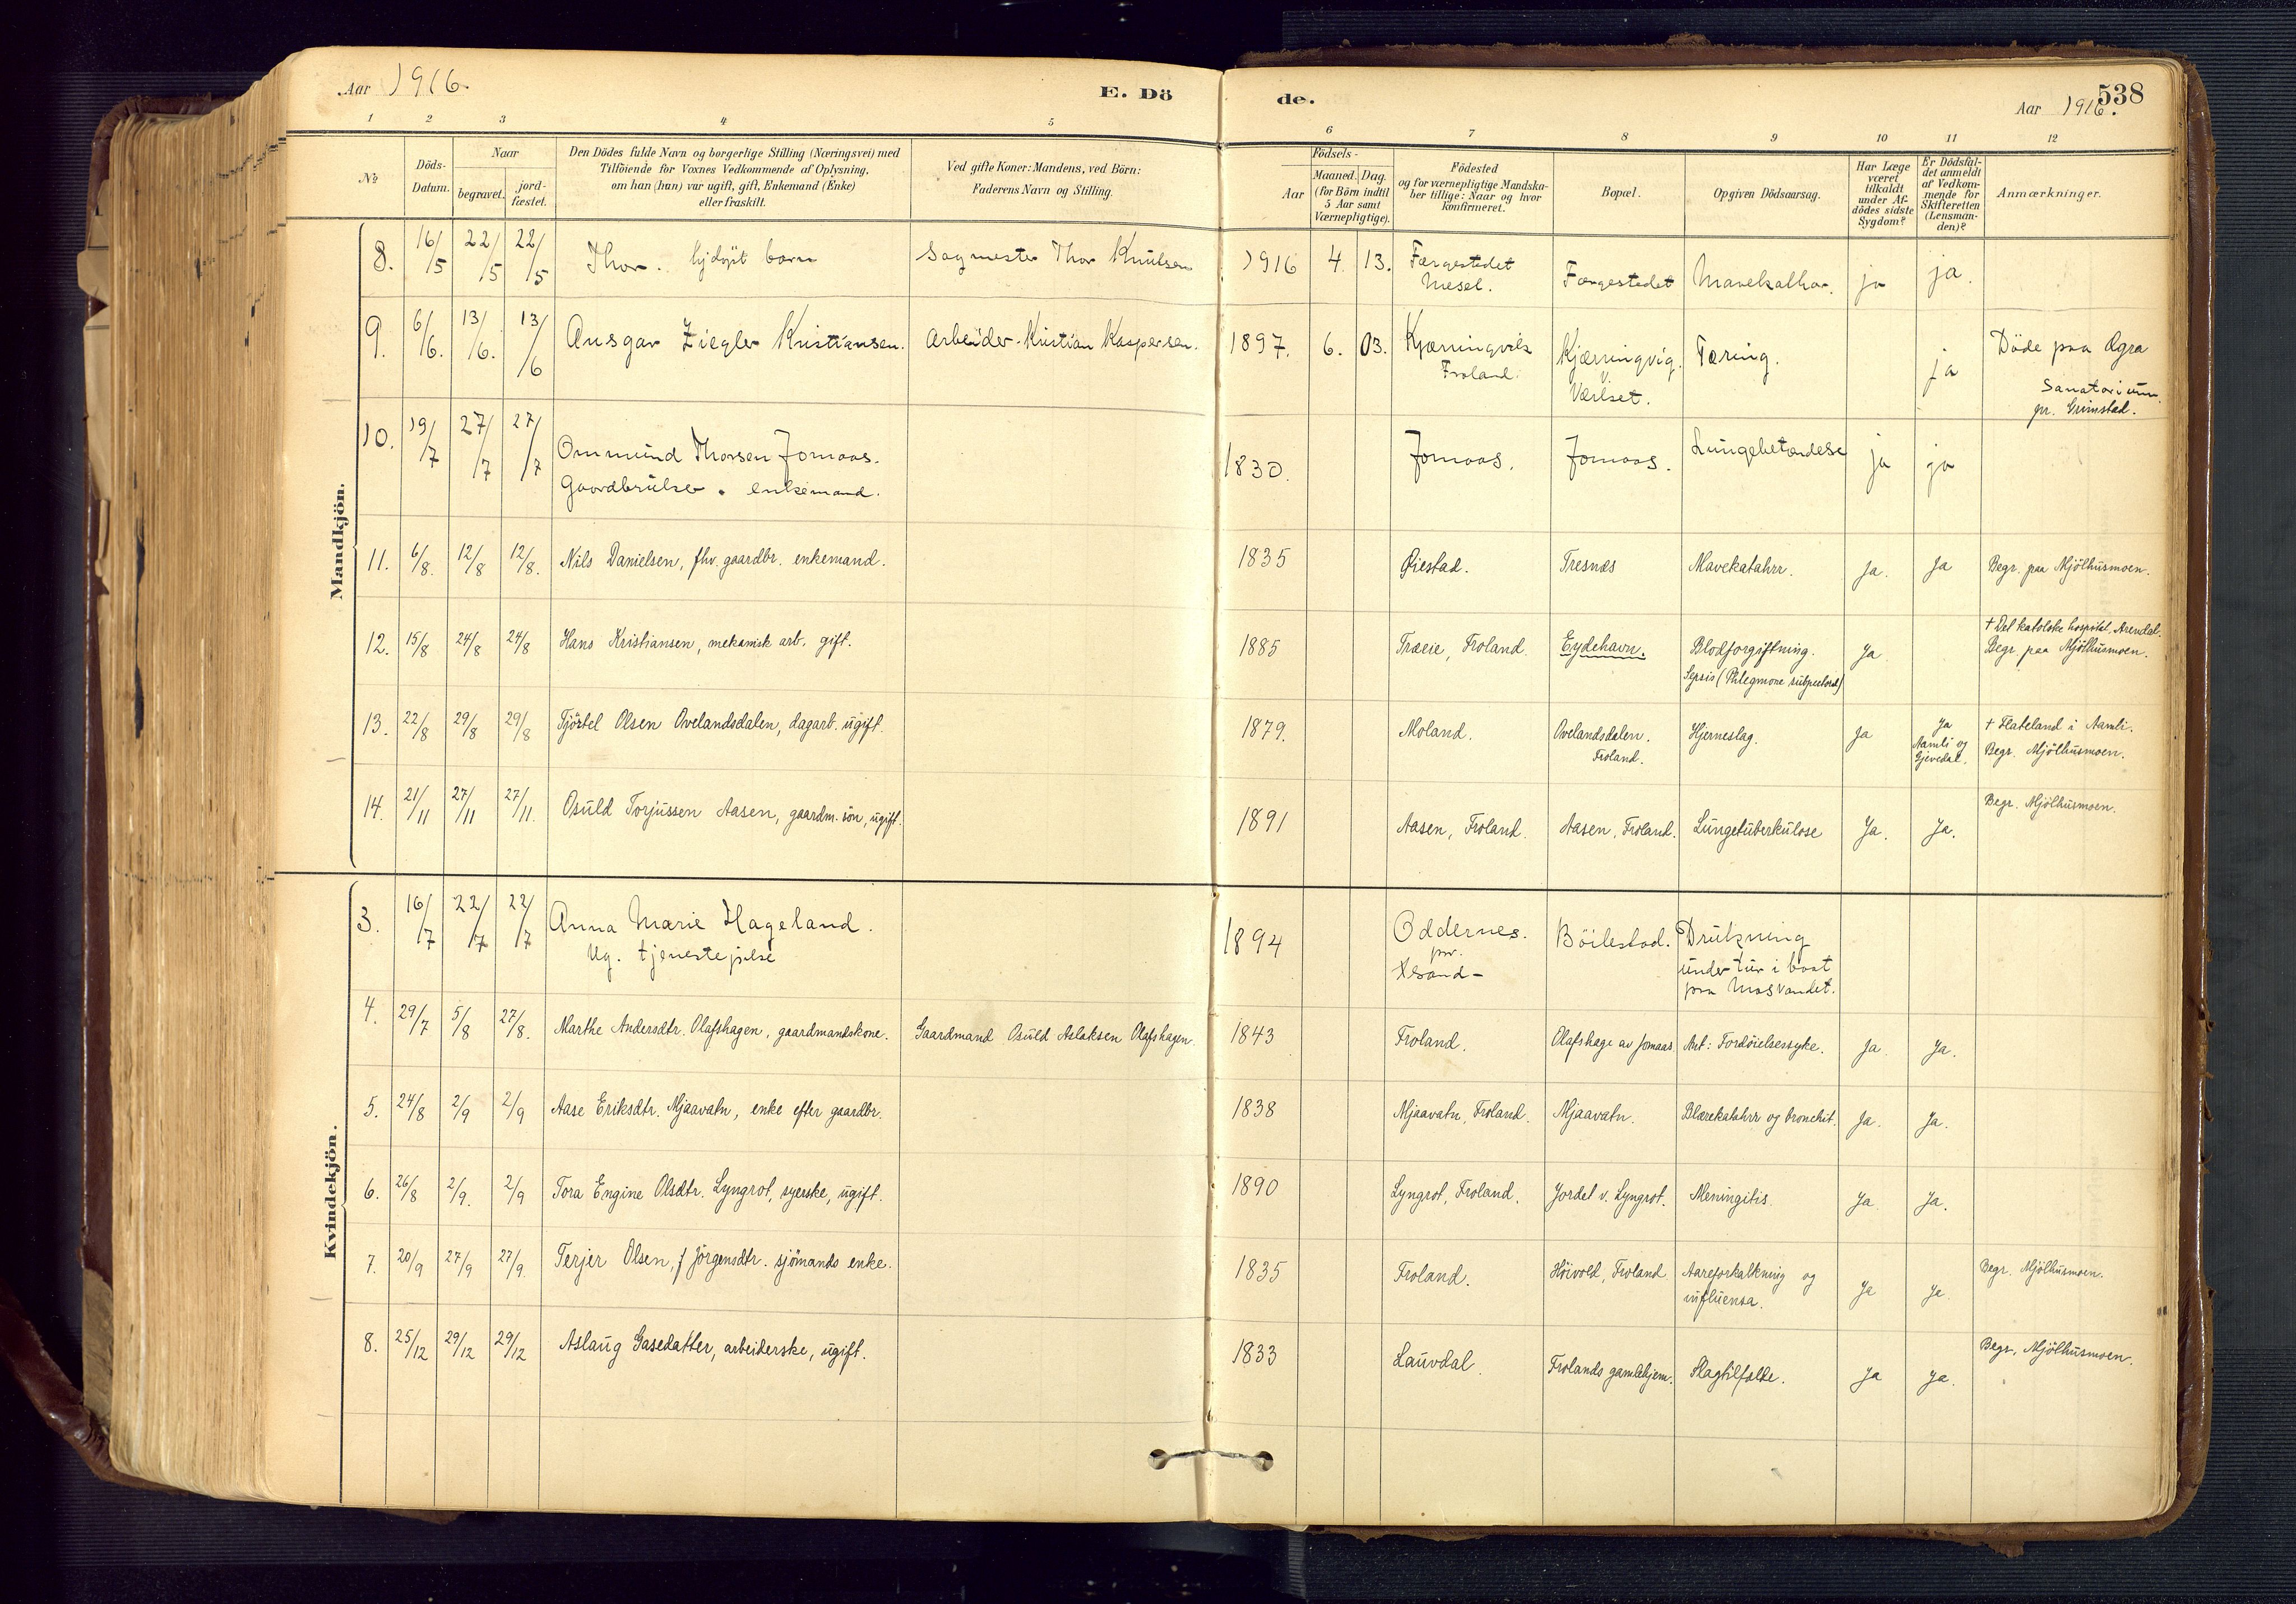 Aar 1916.
E. Dö
de.
Aar 1916.
538
1 2 3 4 5 6 7 8 9 10 11 12
No
Döds-
Datum.
Naar
begravet.
jord-
fæstet.
Den Dödes fulde Navn og borgerlige Stilling (Næringsvei) med
Tilföiende for Voxnes Vedkommende af Oplysning,
om han (hun) var ugift, gift, Enkemand (Enke)
eller fraskilt.
Ved gifte Koner: Mandens, ved Börn:
Faderens Navn og Stilling.
Födsels-
Aar
Maaned. Dag.
(for Börn indtil
5 Aar samt
Værnepligtige).
Födested
og for værnepligtige Mandska-
ber tillige: Naar og hvor
konfirmeret.
Bopæl.
Opgiven Dödsaarsag.
Har Læge
været
tilkaldt
under Af-
dödes sidste
Sygdom?
Er Dödsfal-
det anmeldt
af Vedkom-
mende for
Skifteretten
(Lensman-
den)?
Anmærkninger.
Mandkjön.
8. 16/5 22/5 22/5 Thor. barn Sagmester Thor Knutsen 1916 4. 13. Færgestedet
Mesel. Færgestedet Mavekathar. ja ja.
9. 6/6. 13/6. 13/6 Ansgar Ziegler Kristiansen. Arbeider Kristian Kaspersen. 1897. 6. 03. Kjærringvik
Froland. Kjærringvig
v.
Værlset. Tæring. ja Döde paa Agra
Sanatorium
pr. Grimstad.
10. 19/7 27/7 27/7 Ommund Thorsen Jomaas.
Gaardbruker. enkemand. 1830. Jomaas. Jomaas. Lungebetændelse ja ja
11. 6/8. 12/8 12/8. Nils Danielsen, fhv. gaardbr. enkemand. 1835 Øiestad. Tresnæs Mavekatahrr. Ja. Ja Begr. paa Mjölhusmoen.
12. 15/8 24/8 24/8 Hans Kristiansen, mekanisk arb. gift. 1885 Træeie, Froland. Eydehavn. Blodforgiftning.
Sepsis (Phlegmone subpectoral) Ja † Det katolske hospital, Arendal.
Begr. paa Mjölhusmoen.
13. 22/8 29/8 29/8 Tjöstel Olsen Ovelandsdalen, dagarb. ugift. 1879. Moland. Ovelandsdalen.
Froland. Hjerneslag. Ja Ja
Aamli og
Gjevedal. † Flateland i Aamli.
Begr. Mjölhusmoen.
14. 21/11 27/11 27/11. Osuld Torjussen Aasen, gaardm. sön, ugift. 1891 Aasen, Froland. Aasen, Froland. Lungetuberkulose Ja. Ja. Begr. Mjölhusmoen.
Kvindekjön.
3. 16/7 22/7 22/7 Anna Marie Hageland.
Ug. tjenestepike 1894 Oddernes.
pr.
Xsand- Böilestad. Drukning
under tur i baat
paa Masvandet.
4. 29/7 5/8 27/8. Marthe Andersdtr. Olafshagen, gaardmandskone. Gaardmand Osuld Aslaksen Olafshagen. 1843 Froland. Olafshage av Jomaas Ant: Fordöielsessyke. Ja Ja.
5. 24/8 2/9 2/9 Aase Eriksdtr. Mjaavatn, enke efter gaardbr. 1838 Mjaavatn, Froland. Mjaavatn. Blærekatahrr og bronchit. Ja. Ja.
6. 26/8 2/9. 2/9 Tora Engine Olsdtr. Lyngrot, syerske, ugift. 1890 Lyngrot, Froland. Jordet v. Lyngrot. Meningitis. Ja Ja.
7. 20/9 27/9 27/9. Terjer Olsen, f Jörgensdtr. sjömands enke. 1835 Froland. Höivold, Froland. Aareforkalkning og
influensa. Ja Ja Begr. Mjölhusmoen.
8. 25/12 29/12 29/12 Aslaug Gasedatter, arbeiderske, ugift. 1833 Lauvdal. Frolands gamlehjem. Slagtilfælde. Ja Ja. Begr. Mjölhusmoen.